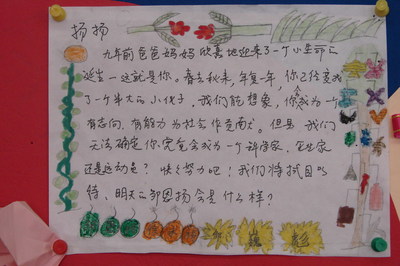 扬扬
九年前爸爸妈妈欣喜地迎来了一个小生命
诞生一这就是你。春去秋来,年复一年,你已经变成
了一个半大的小伙子。我们能想象,你会成为一个
有志向、有能力为社会作贡献。但是 我们
无法确定你究竟会成为一个科学家、企业家
还是运动员?快快努力吧!我们将拭目以
待,明天的邹恩扬会是什么样?